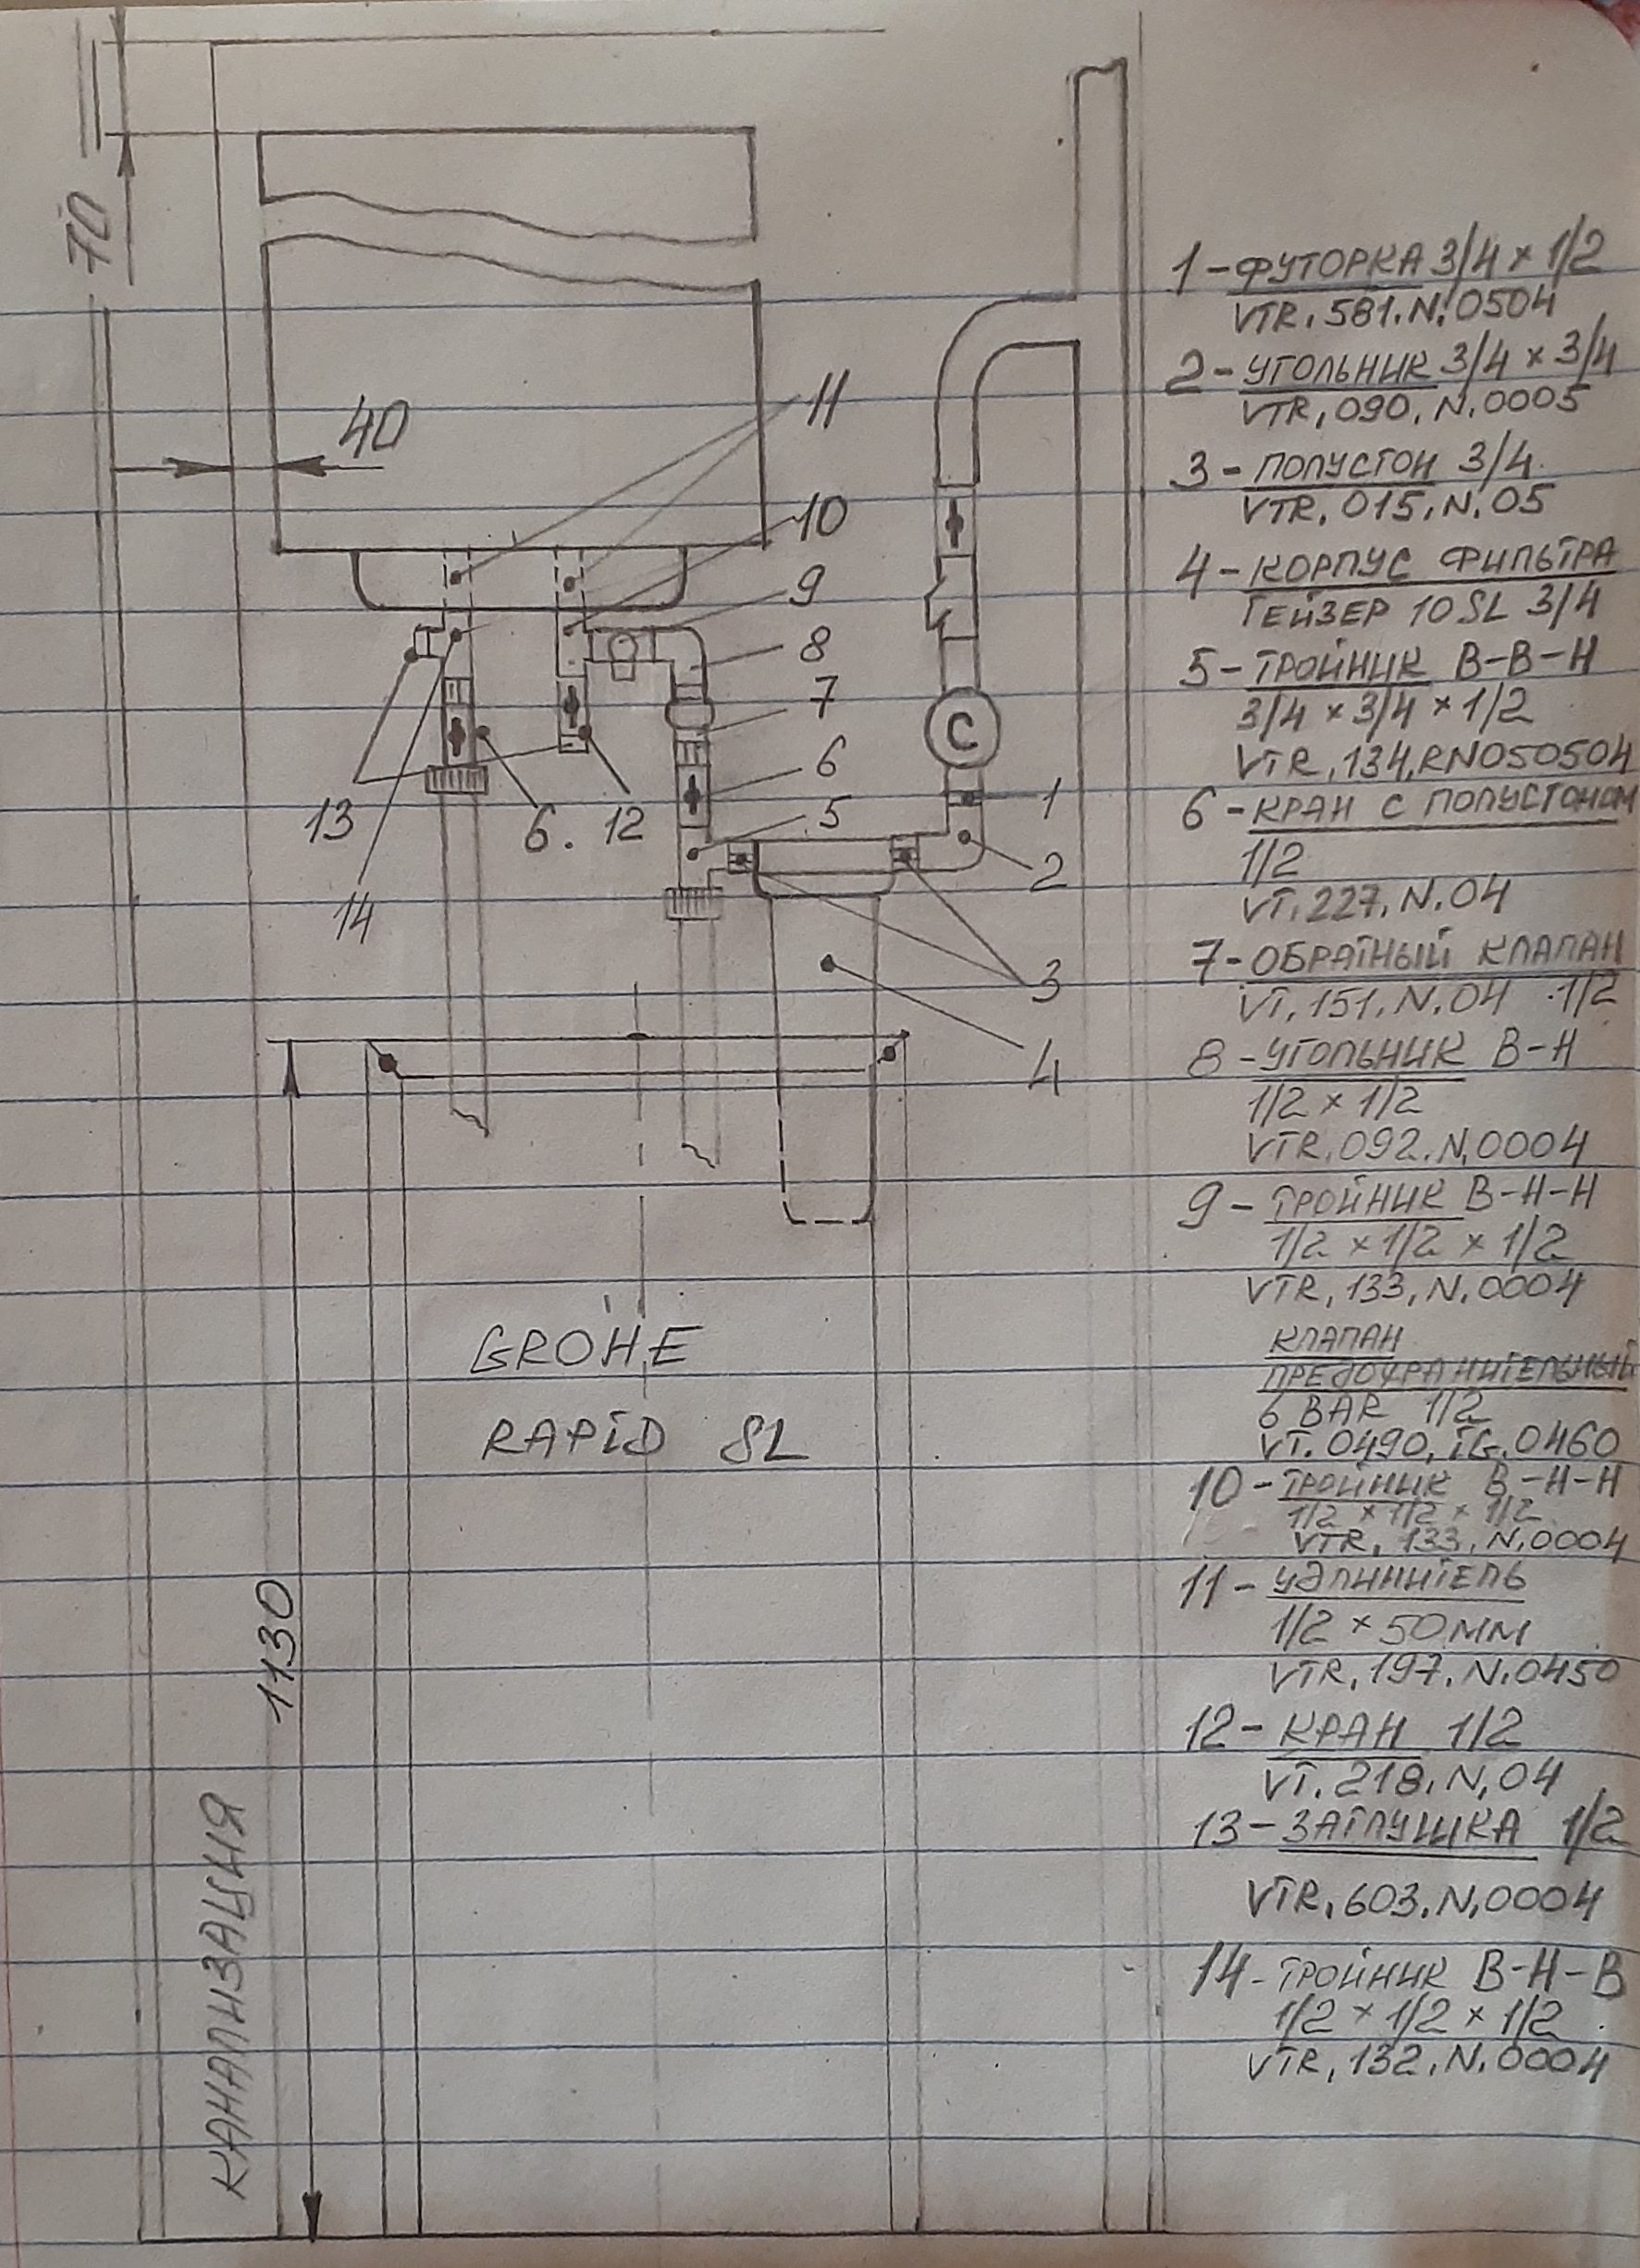 70
40
11
10
9
8
7
6
5
C
1
2
3
4
13
6.
12
14
GROHE
RAPID SL
1130
КАНАЛИЗАЦИЯ
1-ФУТОРКА 3/4 × 1/2
VTR.581.N.0504
2-УГОЛЬНИК 3/4 × 3/4
VTR.090.N.0005
3-ПОЛУСГОН 3/4
VTR.015.N.05
4-КОРПУС ФИЛЬТРА
ГЕЙЗЕР 10SL 3/4
5-ТРОЙНИК В-В-Н
3/4 × 3/4 × 1/2
VTR.134.RN050504
6-КРАН С ПОЛУСГОНОМ
1/2
VT.227.N.04
7-ОБРАТНЫЙ КЛАПАН
VT.151.N.04 1/2
8-УГОЛЬНИК В-Н
1/2 × 1/2
VTR.092.N.0004
9-ТРОЙНИК В-Н-Н
1/2 × 1/2 × 1/2
VTR.133.N.0004
КЛАПАН
ПРЕДОХРАНИТЕЛЬНЫЙ
6 BAR 1/2
VT.0490.IG.0460
10-ТРОЙНИК В-Н-Н
1/2 × 1/2 × 1/2
VTR.133.N.0004
11-УДЛИННИТЕЛЬ
1/2 × 50ММ
VTR.197.N.0450
12-КРАН 1/2
VT.218.N.04
13-ЗАГЛУШКА 1/2
VTR.603.N.0004
14-ТРОЙНИК В-Н-В
1/2 × 1/2 × 1/2
VTR.132.N.0004